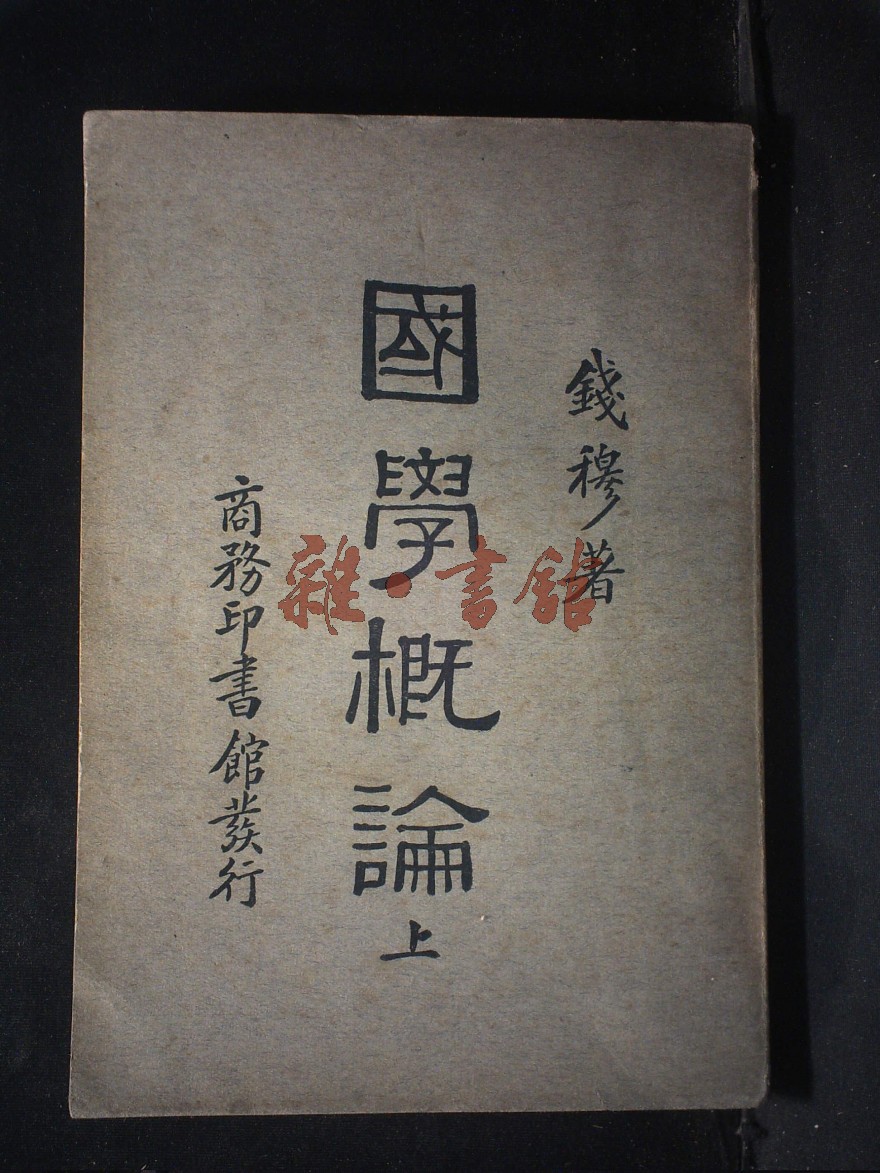 錢穆著
國學概論 上
商務印書館發行
雜·書館